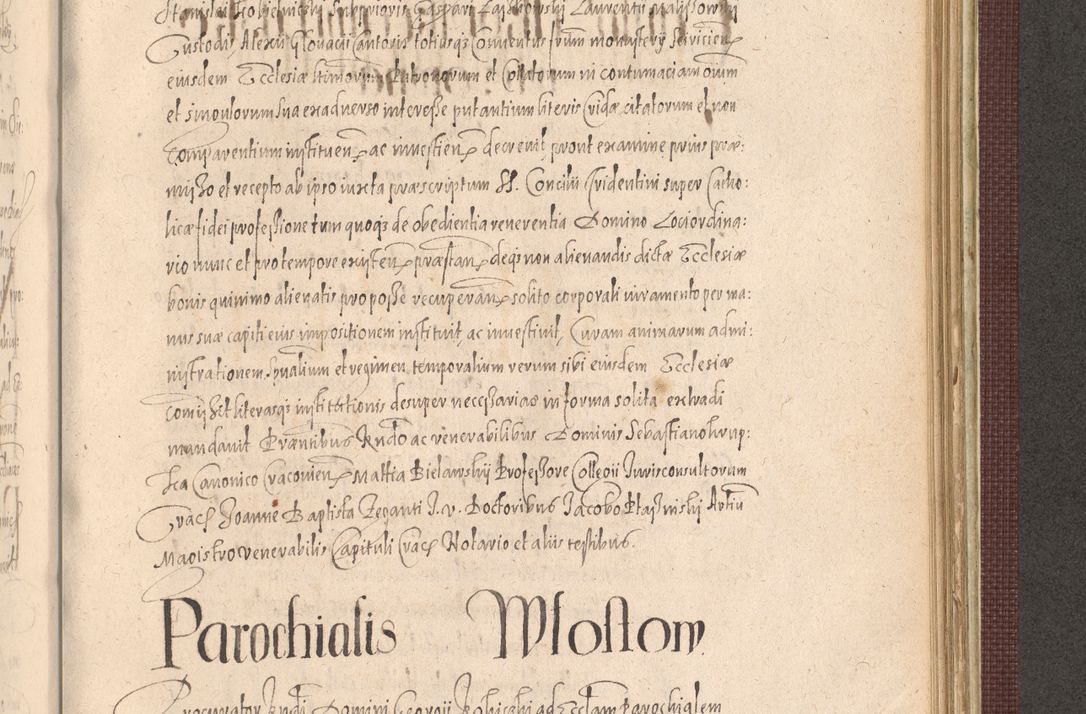 Custodis Alexii Glovacii Cantoris totiusqȝ Conventus
eiusdem Ecclesiæ ltimorum Patronorum et Collatorum in contumaciam omium
et singulorum sua exadverso interesse putantium literis Cridæ citatorum et non
Comparentium instituen ac investien decrevit, prout examine prius præ:
misso et recepto ab ipso iuxta præscriptum SS. Concilii Tridentini super Catho:
licæ fidei professione tum quoqȝ de obedientia reverentia Domino Loci ordina:
rio nunc et pro tempore existen præstan deqȝ non alienandis dictæ Ecclesiæ
bonis quinimo alienatis pro posse recuperan solito corporali iuramento per ma:
nus suæ capiti eius impositionem instituit ac investivit, Curam animarum admi:
nistrationem spualium et regimen temporalium verum sibi eiusdem Ecclesiæ
comisit literasqȝ institutionis desuper necessarias in forma solita extradi
mandavit Præntibus Rndo ac venerabilibus Dominis Sebastiano Krup:
ka Canonico Cracovien Mattia Bielawskij Professore Collegii Iurisconsultorum
Crac Joanne Baptista Zeganti I. v. Doctoribus Jacobo Artiū
Magistro venerabilis Capituli Crac Notario et aliis testibus.
Parochialis Wlostow
Procurator Rndi Domini Georgii ad Ecclam Parochialem